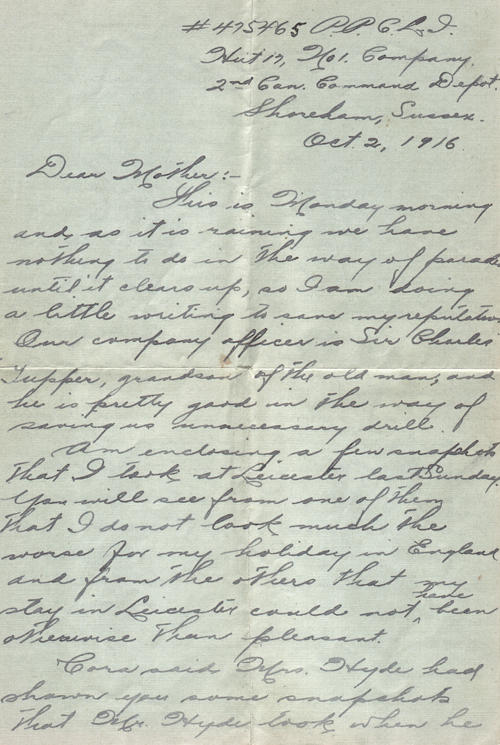 # 475465 P.P.C.L.I.
Hut 17, No 1. Company.
2nd Can. Command Depot.
Shoreham, Sussex.
Oct. 2, 1916
Dear Mother:-
This is Monday morning
and, as it is raining we have
nothing to do in the way of parade
until it clears up, so I am doing
a little writing to save my reputation.
Our company officer is Sir Charles
Tupper, grandson of the old man, and
he is pretty good in the way of
saving us unnecessary drill.
Am enclosing a few snapshots
that I took at Leicester last Sunday.
You will see from one of them
that I do not look much the
worse for my holiday in England
and from the others that my
stay in Leicester could not have been
otherwise than pleasant.
Cora said Mrs. Hyde had
shown you some snapshots
that Mr. Hyde took when he